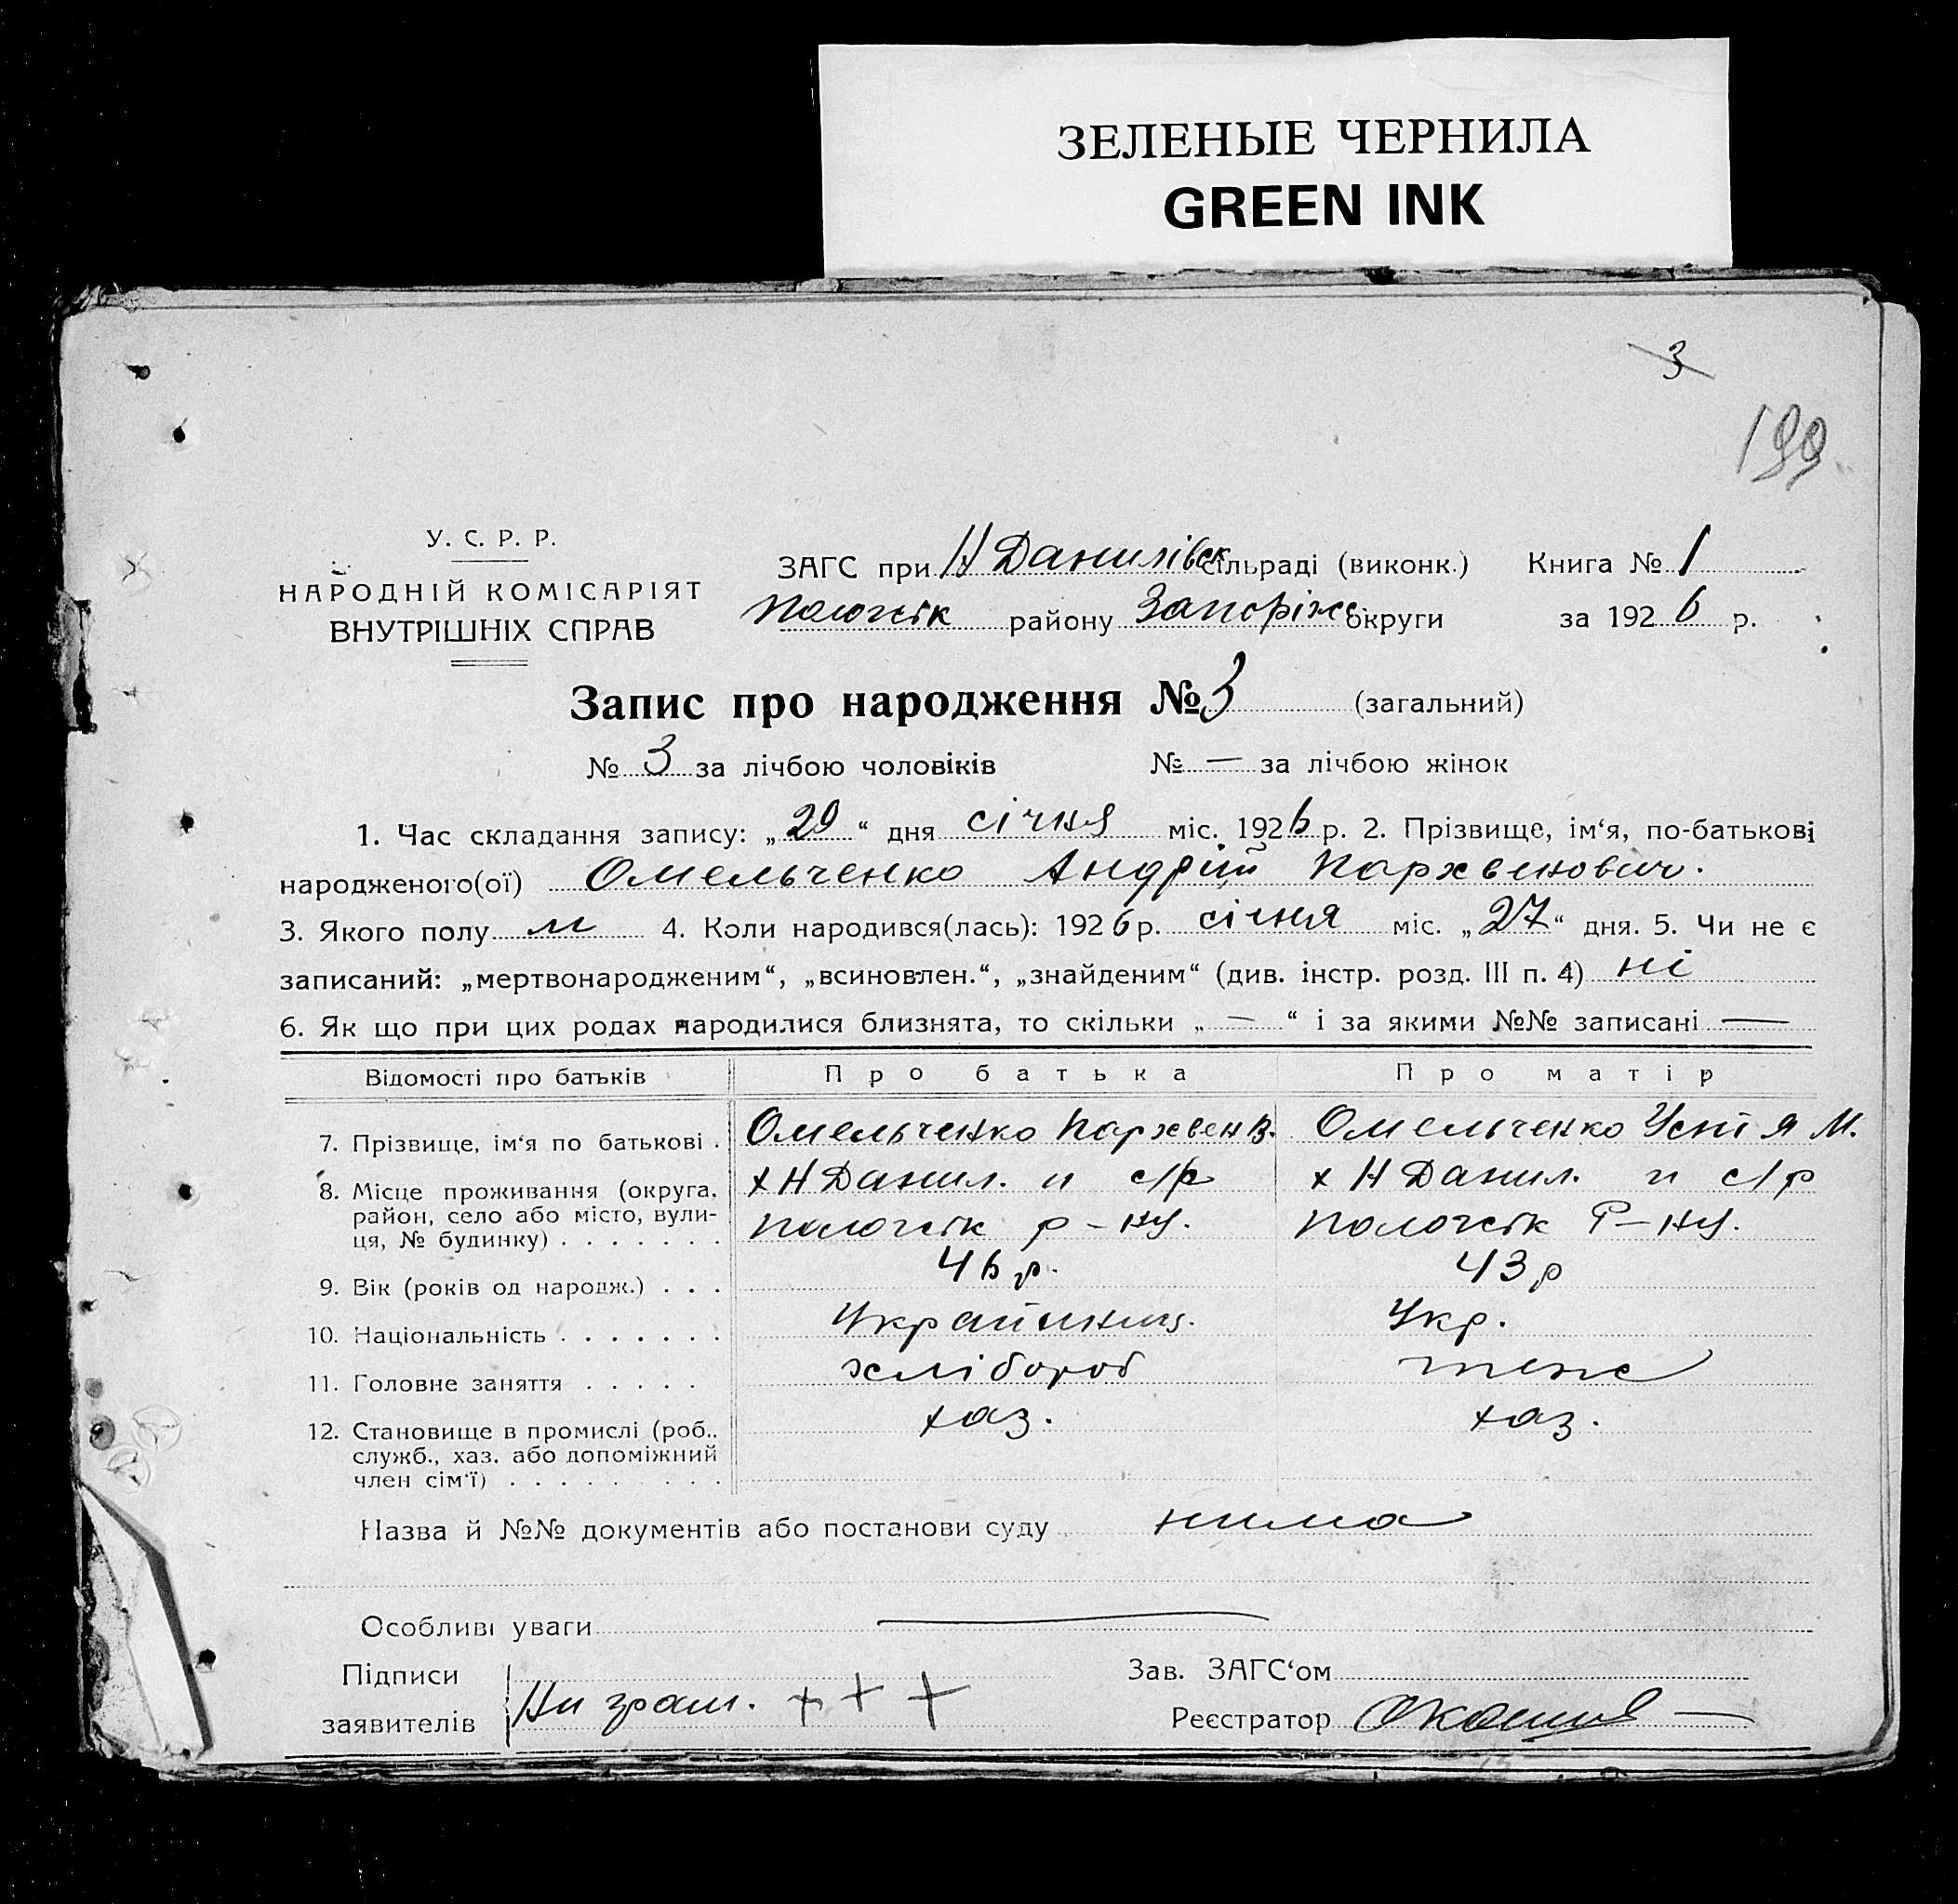 ЗЕЛЕНЫЕ ЧЕРНИЛА
GREEN INK
3
199.
У. С. Р. Р.
НАРОДНІЙ КОМІСАРІЯТ
ВНУТРІШНІХ СПРАВ
ЗАГС при Н Данилівск сільраді (виконк.) Книга № 1
Пологівськ району Запоріж. округи за 1926 р.
Запис про народження № 3 (загальний)
№ 3 за лічбою чоловіків № — за лічбою жінок
1. Час складання запису: „29“ дня січня міс. 1926 р. 2. Прізвище, ім‘я, по-батькові
народженого(ої) Омельченко Андрій Пархвенович.
3. Якого полу м 4. Коли народився(лась): 1926 р. січня міс. „27“ дня. 5. Чи не є
записаний: „мертвонародженим“, „всиновлен.“, „знайденим“ (див. інстр. розд. III п. 4) ні
6. Як що при цих родах народилися близнята, то скільки „ — “ і за якими №№ записані —
Відомості про батьків Про батька Про матір
7. Прізвище, ім‘я по батькові . Омельченко Пархвен В. Омельченко Устя М.
8. Місце проживання (округа, х Н Данил. н с/р х Н Данил. н с/р
район, село або місто, вули- р-ну. Р-ну.
ця, № будинку) . . . . . . .
9. Вік (років од народж.) . . . 46 р. 43 р
10. Національність . . . . . . . Укр.
11. Головне заняття . . . . . хлібороб теж
12. Становище в промислі (роб., хаз. хаз.
служб., хаз. або допоміжний
член сім‘ї) . . . . . . . . .
Назва й №№ документів або постанови суду нима
Особливі уваги —
Підписи Зав. ЗАГС‘ом
заявителів Ни грам. + + + Реєстратор